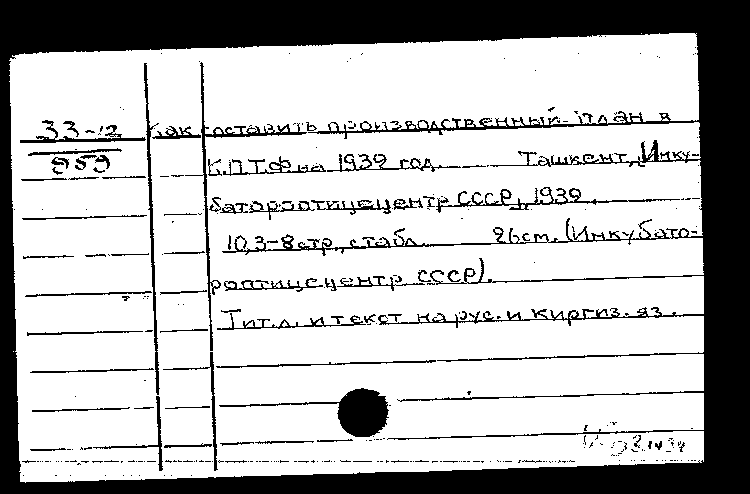 33-12 Как составить производственный план в
959 К.П.Т.Ф на 1939 год. Ташкент, Инку-
батороптицецентр СССР, 1939.
10,3-8 стр., с табл. 26 cm. (Инкубато-
роптицецентр СССР).
Тит. л. и текст на рус. и киргиз. яз.